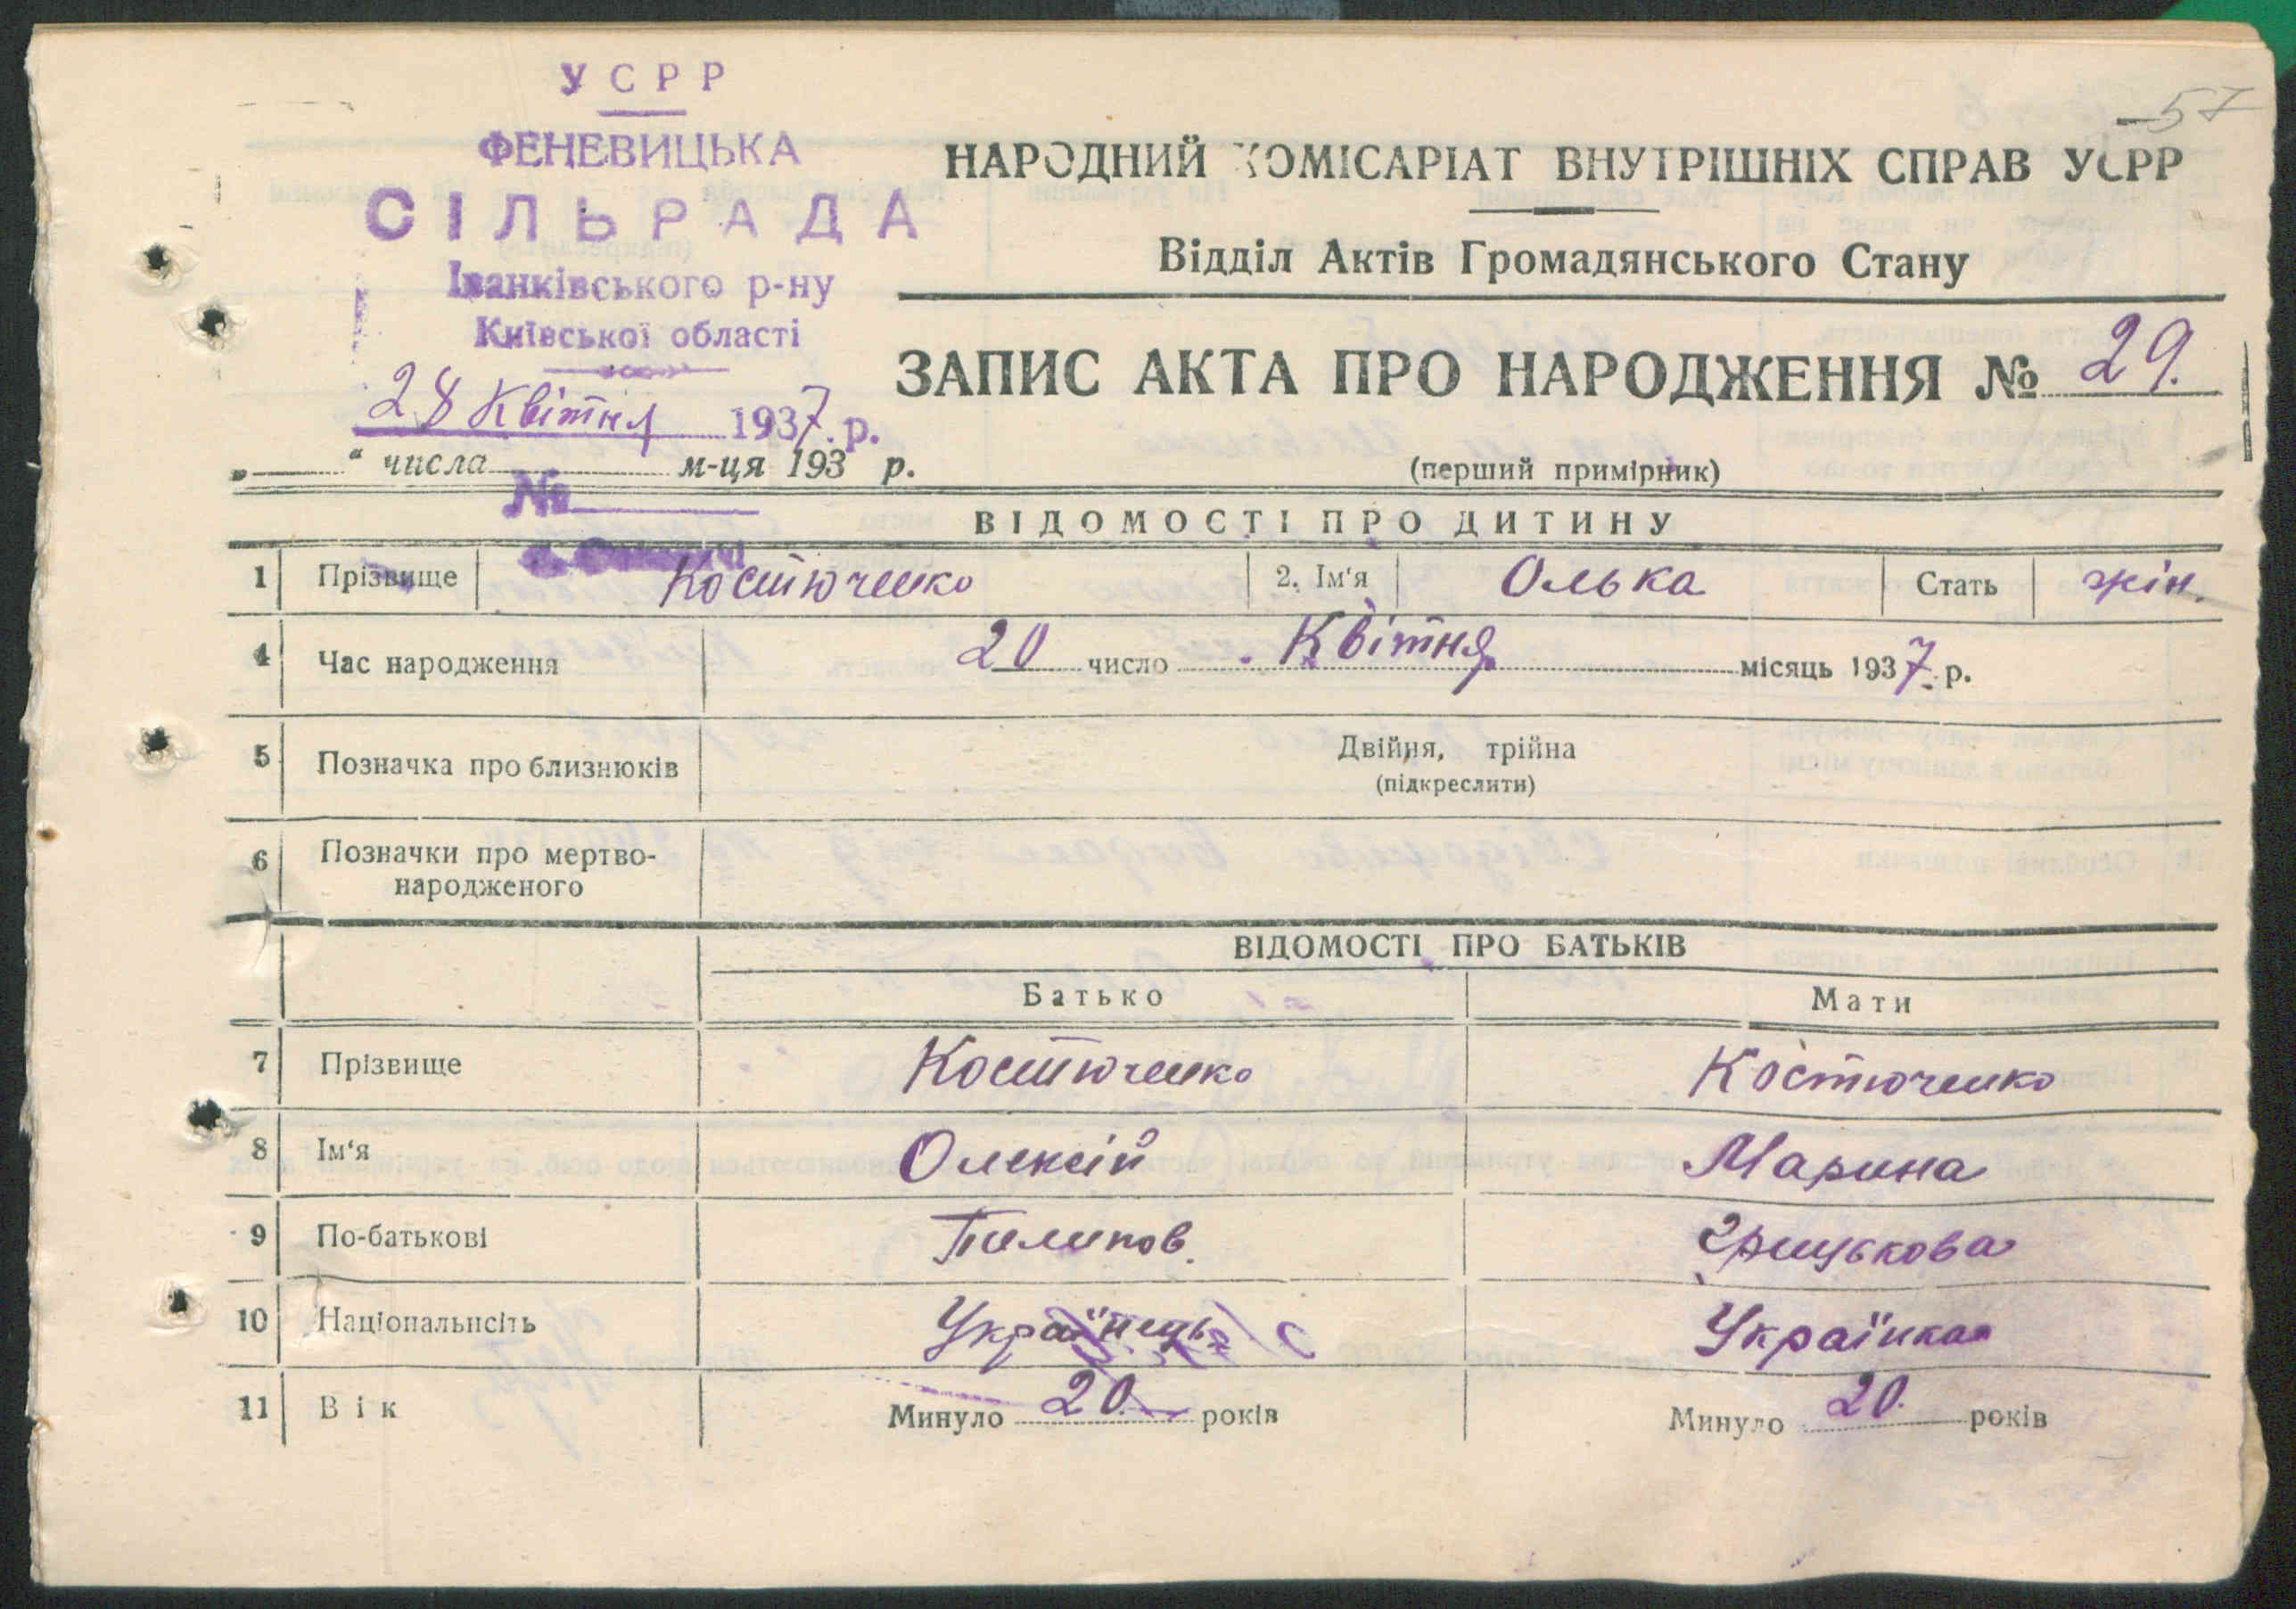 57
УСРР
ФЕНЕВИЦЬКА
СІЛЬРАДА
Іванківського р-ну
Київської області
28 Квітня 1937 р.
„ “ числа м-ця 193 р.
№
НАРОДНИЙ КОМІСАРІАТ ВНУТРІШНІХ СПРАВ УСРР
Відділ Актів Громадянського Стану
ЗАПИС АКТА ПРО НАРОДЖЕННЯ № 29.
(перший примірник)
ВІДОМОСТІ ПРО ДИТИНУ
1 Прізвище Костюченко 2. Ім'я Олька Стать жін.
4 Час народження 20 число Квітня місяць 1937 р.
5 Позначка про близнюків Двійня, трійна
(підкреслити)
6 Позначки про мертво-
народженого
ВІДОМОСТІ ПРО БАТЬКІВ
Батько Мати
7 Прізвище Костюченко Костюченко
8 Ім'я Олексій Марина
9 По-батькові Пилипов. Грицькова
10 Національнсіть Українець Українка
11 Вік Минуло 20 років Минуло 20. років